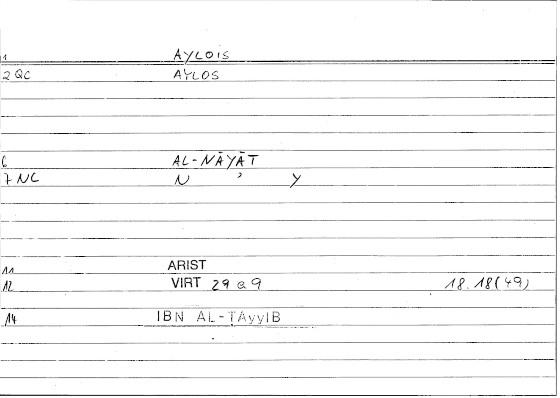 1 AYLOIS
2 QC AYLOS
6 AL-NĀYĀT
7 NC N ʾ Y
11 ARIST
12 VIRT 29 a 9 18.18(49)
14 IBN AL-TAyyIB